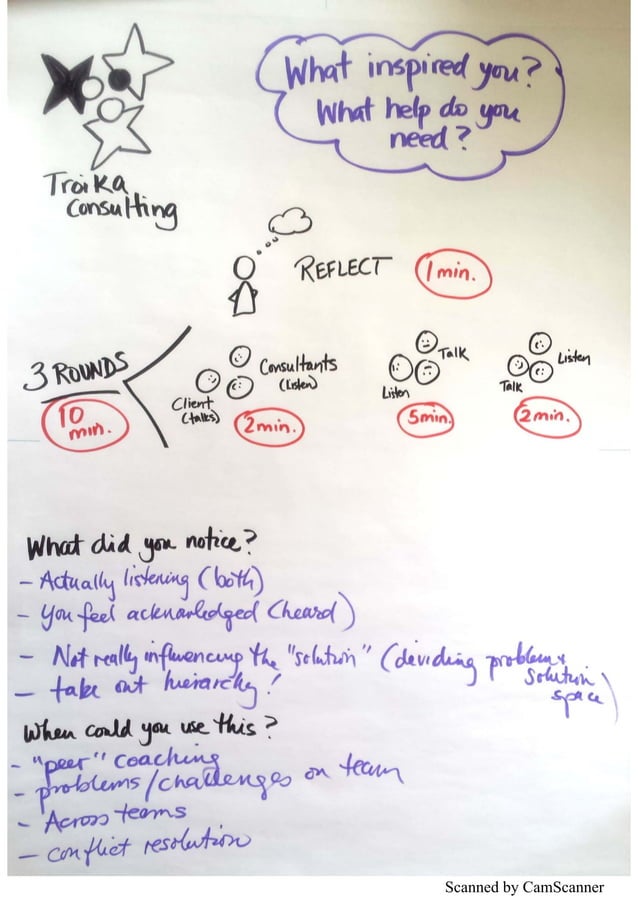 What inspired you?
What help do you
need?
Troika
Consulting
REFLECT
1 min.
3 ROUNDS
10
min.
Client
(talks)
Consultants
(Listen)
2 min.
Talk
Listen
5 min.
Listen
Talk
2 min.
What did you notice?
- Actually listening (both)
- You feel acknowledged (heard)
- Not really influencing the "solution" (deviding problem &
solution
space)
- take out hierarchy!
When could you use this?
- "peer" coaching
- problems/challenges on team
- Across teams
- conflict resolution
Scanned by CamScanner